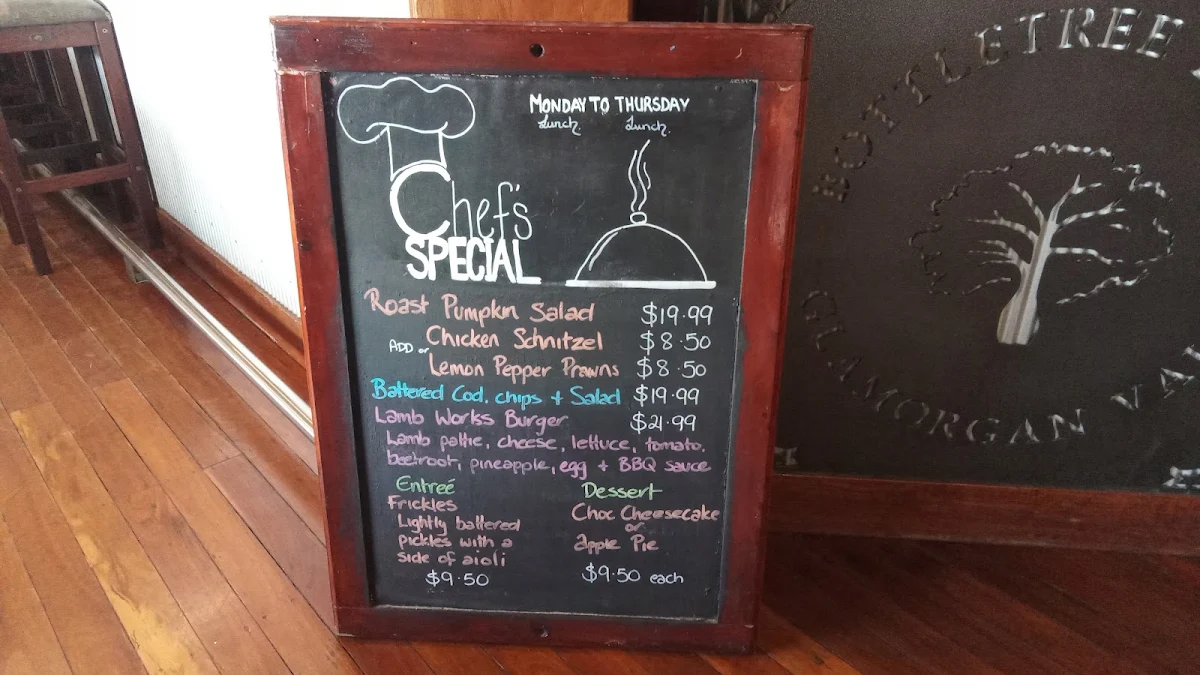 MONDAY TO THURSDAY
Lunch Lunch
Chef's
SPECIAL
Roast Pumpkin Salad $19.99
Chicken Schnitzel $8.50
ADD or
Lemon Pepper Prawns $8.50
Battered Cod, chips + Salad $19.99
Lamb Works Burger $21.99
Lamb pattie, cheese, lettuce, tomato,
beetroot, pineapple, egg + BBQ sauce
Entreé
Frickles
Lightly battered
pickles with a
side of aioli
$9.50
Dessert
Choc Cheesecake
or
Apple Pie
$9.50 each
BOTTLETREE
GLAMORGAN